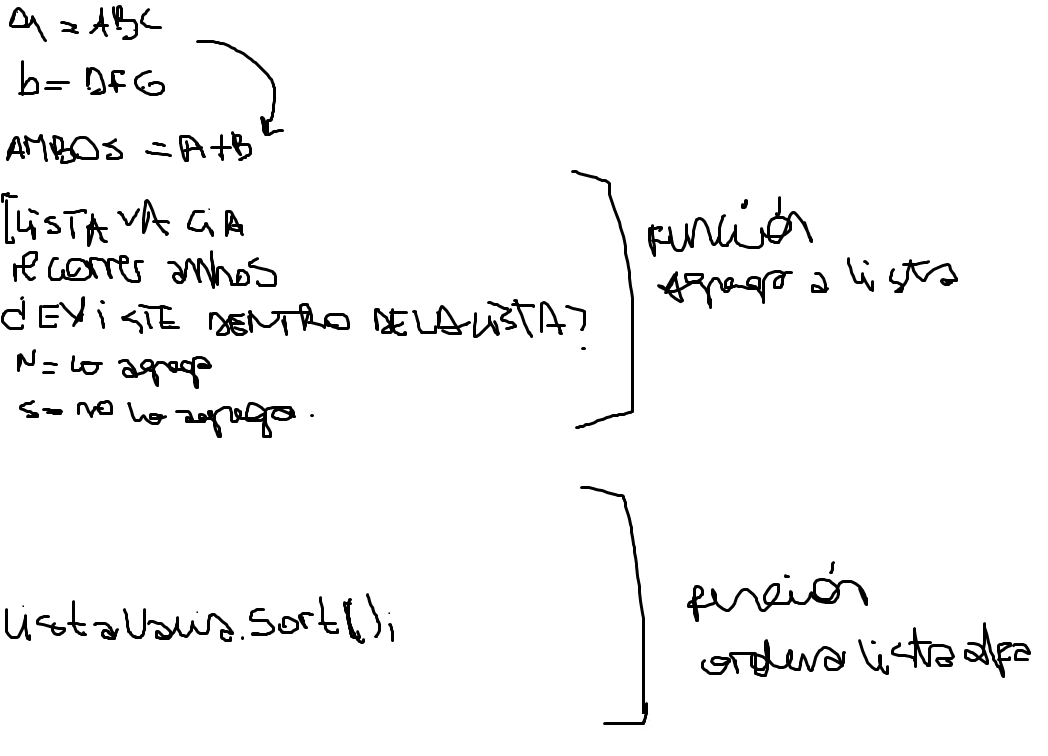 A = ABC
b = DFG
AMBOS = A+B
[LiSTA VACiA
recorrer ambos
¿EXiSTE DENTRO DE LA LiSTA?
N = lo agrego
S = no lo agrego.
función
agrega a lista
listaVacia.Sort();
función
ordena lista alfa